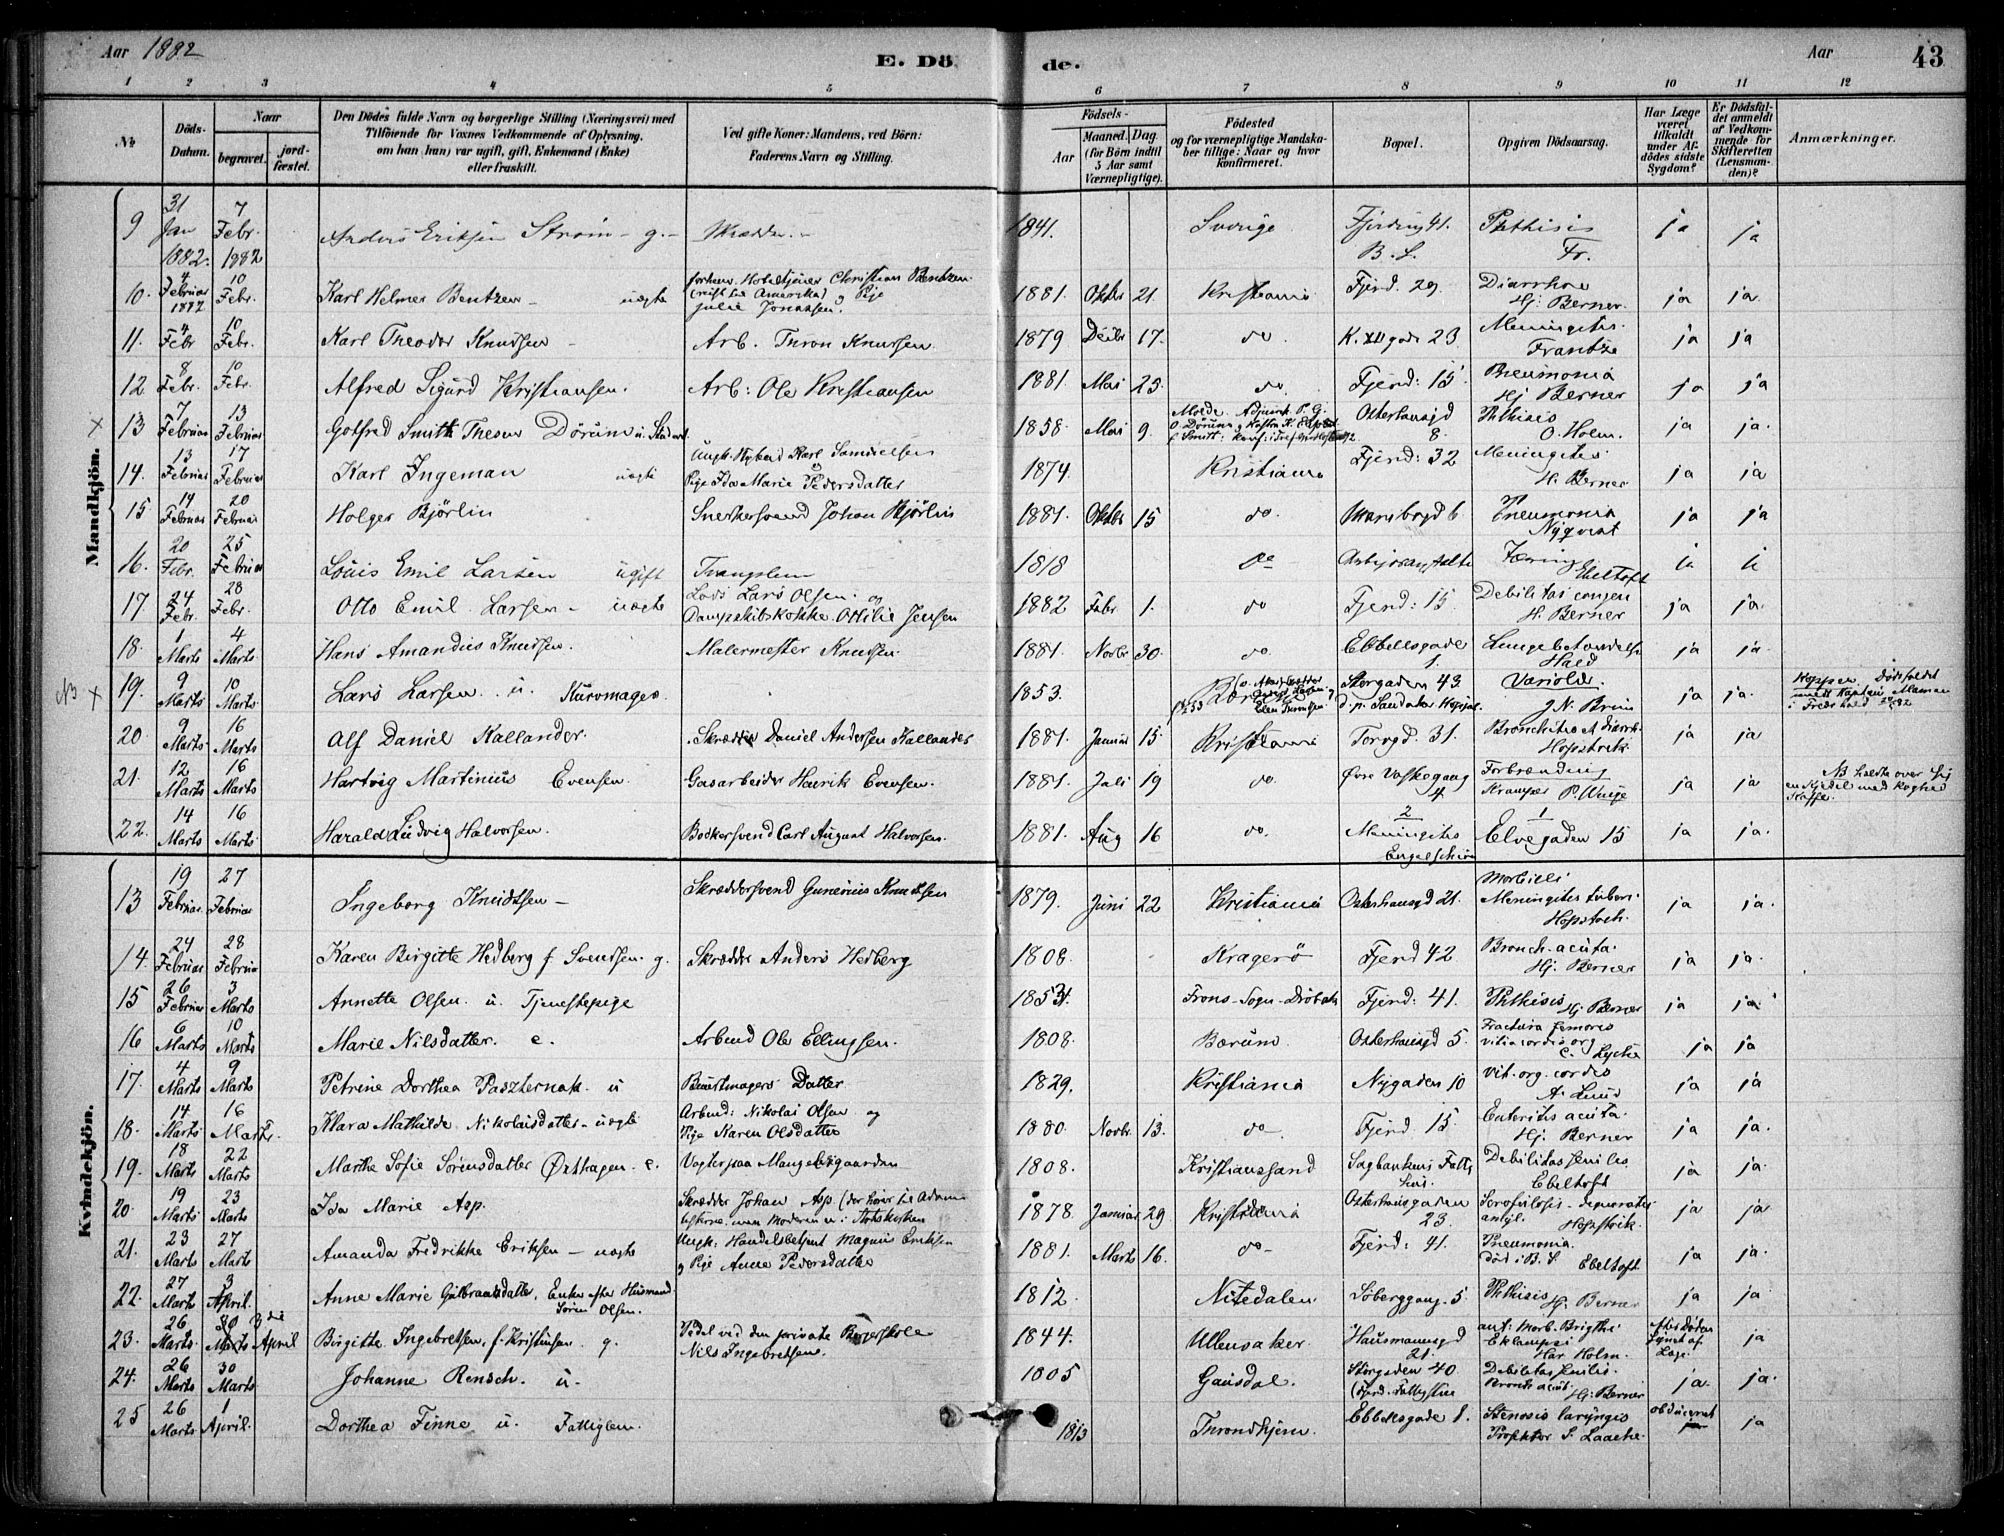 Aar 1882
E. Dö
de.
Aar
43
1 2 3 4 5 6 7 8 9 10 11 12
№
Döds-Datum.
Naar
begravet.
jord-fæstet.
Den Dödes fulde Navn og borgerlige Stilling (Næringsvei) med
Tilföiende for Voxnes Vedkommende af Oplysning,
om han (hun) var ugift, gift, Enkemand (Enke)
eller fraskilt.
Ved gifte Koner: Mandens, ved Börn:
Faderens Navn og Stilling.
Födsels-
Aar
Maaned. Dag.
(for Börn indtil
5 Aar samt
Værnepligtige).
Födested
og for værnepligtige Mandska-
ber tillige: Naar og hvor
konfirmeret.
Bopæl.
Opgiven Dödsaarsag.
Har Læge
været
tilkaldt
under Af-
dödes sidste
Sygdom?
Er Dödsfal-
det anmeldt
af Vedkom-
mende for
Skifteretten
(Lensman-
den)?
Anmærkninger.
Mandkjön.
9 31 Jan 1882. 7 Febr. 1882 Anders Eriksen Strøm - g. - Skrædder. - 1841. Sverige Fjerding 41. B. S. Phthisis Fr. ja ja
10. 4 Februar 1882 10 Febr. Karl Helmer Bentzen - uægte forhenv. Hoteltjener Christian Bentzen (reist til Amerika) og Pige Julie Jonassen. 1881. Oktbr 21. Kristiania Fjerd. 29. Diarrhoe Hj. Berner. ja ja.
11. 4 Febr 10 Febr. Karl Theodor Knudsen - Arb. Thron Knudsen. 1879 Decbr 17. do K. XII gade 23 Meningitis. Frantze ja ja
12 8 Febr. 10 Febr. Alfred Sigurd Kristiansen. Arb: Ole Kristiansen 1881. Mai 25. do Fjerd: 15 Pneumonia Hj Berner ja ja
× 13 7 Februar 13 Februar Gotfred Smith Thesen Dörum u. Student 1858. Mai 9. Molde. Adjunkt P. G. O. Dörum og Osterhausgd 8. Phthisis O. Holm. ja ja.
14. 13 Februar 17 Februar Karl Ingeman uægte Ungk. Karl Samuelsen og Pige Ida Marie Pedersdatter 1874. Kristiania Fjerd: 32 Meningitis H. Berner ja ja
15 14 Februar 20 Februar Holger Björlin Snekkersvend Johan Björlin 1881. Oktbr 15 do. Maribogd 6 Pneumonia Nyqvist ja ja
16. 20 Febr. 25 Februar Louis Emil Larsen ugift Tvangslem 1818 do Tæring Ebeltoft ja
17. 24 Febr. 28 Febr. Otto Emil Larsen - uægte Lods Lars Olsen. og Dampskibskokke Ottilie Jensen 1882 Febr 1. do Fjerd: 15. Debilitas congen H. Berner ja ja.
18. 1 Marts 4 Marts. Hans Amandus Knudsen. Malermester Knudsen 1881. Novbr 30. do. Ebbellsgade 1. Lungebetændelse Hald ja ja.
NB × 19. 9 Marts. 10 Marts. Lars Larsen. u. Kurvmager. 1853. Storgaden 43. Variolæ. J. N. Bruun ja ja. Kopper.
20 9 Marts. 16 Marts. Alf Daniel Kallander. Skrædder Daniel Andersen Kallander 1881. Januar 15. Kristiania Torvgd. 31. Bronchitis et diarrh. Hopstock. ja ja
21. 12 Marts 16 Marts. Hartvig Martinius Evensen. Gasarbeider Henrik Evensen. 1881. Juli 19 do. Øvre Vaskegang 4. Forbrænding Kramper P. Winge ja ja NB hældte over sig en Kjedel med koghed Kaffe.
22. 14 Marts 16 Marts. Harald Ludvig Halvorsen. Bödkersvend Carl August Halvorsen. 1881. Aug 16 do. 2 Meningitis Engelschiøn 1 Elvegaden 15 ja ja.
Kvindekjön.
13 19 Februar. 27 Februar Ingeborg Knudtsen - Skræddersvend Gunerius Knudtsen 1879. Juni 22 Kristiania Osterhausgd 21. Morbilli Meningitis tuberc. Hopstock. ja ja.
14. 24 Februar 28 Februar Karen Birgitte Hedberg f. Svendsen. g. Skrædder Anders Hedberg 1808. Kragerö Fjerd 42. Bronch. acuta. Hj. Berner ja ja.
15 26 Februar 3 Marts. Annette Olsen. u. Tjenestepige 1853. Frons-Sogn-Dröbak Fjerd: 41. Phthisis Hj. Berner ja ja
16 6 Marts 10 Marts Marie Nilsdatter. e. Arbmd Ole Ellingsen. 1808. Bærum Osterhausgd 5. Fractura femoris vitia cordis org C. Lyche ja ja
17. 4 Marts 9 Marts. Petrine Dorthea Paszternak. u Buntmagers Datter 1829. Kristiania Nygaden 10 Vit. org. cordis A. Lund ja ja
18. 14 Marts 16 Marts. Klara Mathilde Nikolaisdatter - uægte Arbmd: Nikolai Olsen og Pige Karen Olsdatter 1880. Novbr. 13. do Fjerd. 15. Enteritis acuta. Hj. Berner ja ja.
19. 18 Marts 22 Marts Marthe Sofie Sörensdatter Østhagen. e. Vægter paa Mangelsgaarden 1808. Kristianssand Sagbankens Fattighus. Debilitas senilis. Ebeltoft ja ja
20. 19 Marts 23 Marts Ida Marie Asp. Skrædder Johan Asp. (der hörer til Advent isterne, men Moderen u. i Statskirken 1878. Januar 29 Kristiania Osterhausgaden 23. Scrofulosis - Hopstock. ja ja
21. 23 Marts. 27 Marts Amanda Fredrikke Eriksen - uægte Ungk: Handelsbetjent Magnus Eriksen og Pige Anne Pedersdatter 1881. Marts 16. do Fjerd: 41. Pneumonia. död i B. S. Ebeltoft ja ja.
22. 27 Marts 3 April. Anne Marie Gulbrandsdatter. Enke efter Husmand Sören Olsen. 1812 Nitedalen Söberggang. 5. Phthisis Hj. Berner ja ja.
23. 26 Marts. 30 Marts 3die April Birgitte Ingebretsen, f. Kristiansen. g. Pedel ved den private Borgerskole Nils Ingebretsen. 1844. Ullensaker. Hausmannsgd 21. ant: Morb. Brigthi Eklampsi Har Holm. Afdöde Synet af Læge. ja
24. 26 Marts 30 Marts Johanne Rensch. u. 1805 Gausdal. Storgaden 40 (Fjerd. Fattigstue Debilitas senilis. Bronch. acut. Hj: Berner ja. ja.
25 26 Marts 1 April. Dorthea Finne u. Fattiglem. 1813 Throndhjem. Ebbellsgade 1. Stenosis laryngis Prosektor S. Laache. obduceret ja